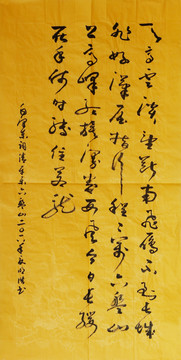 天高雲淡望斷南飛雁不到長城
非好漢屈指行程二萬六盤山
上高峰紅旗漫卷西風今日長纓
在手何時縛住蒼龍
毛澤東詞清平樂六盤山二〇一八年書